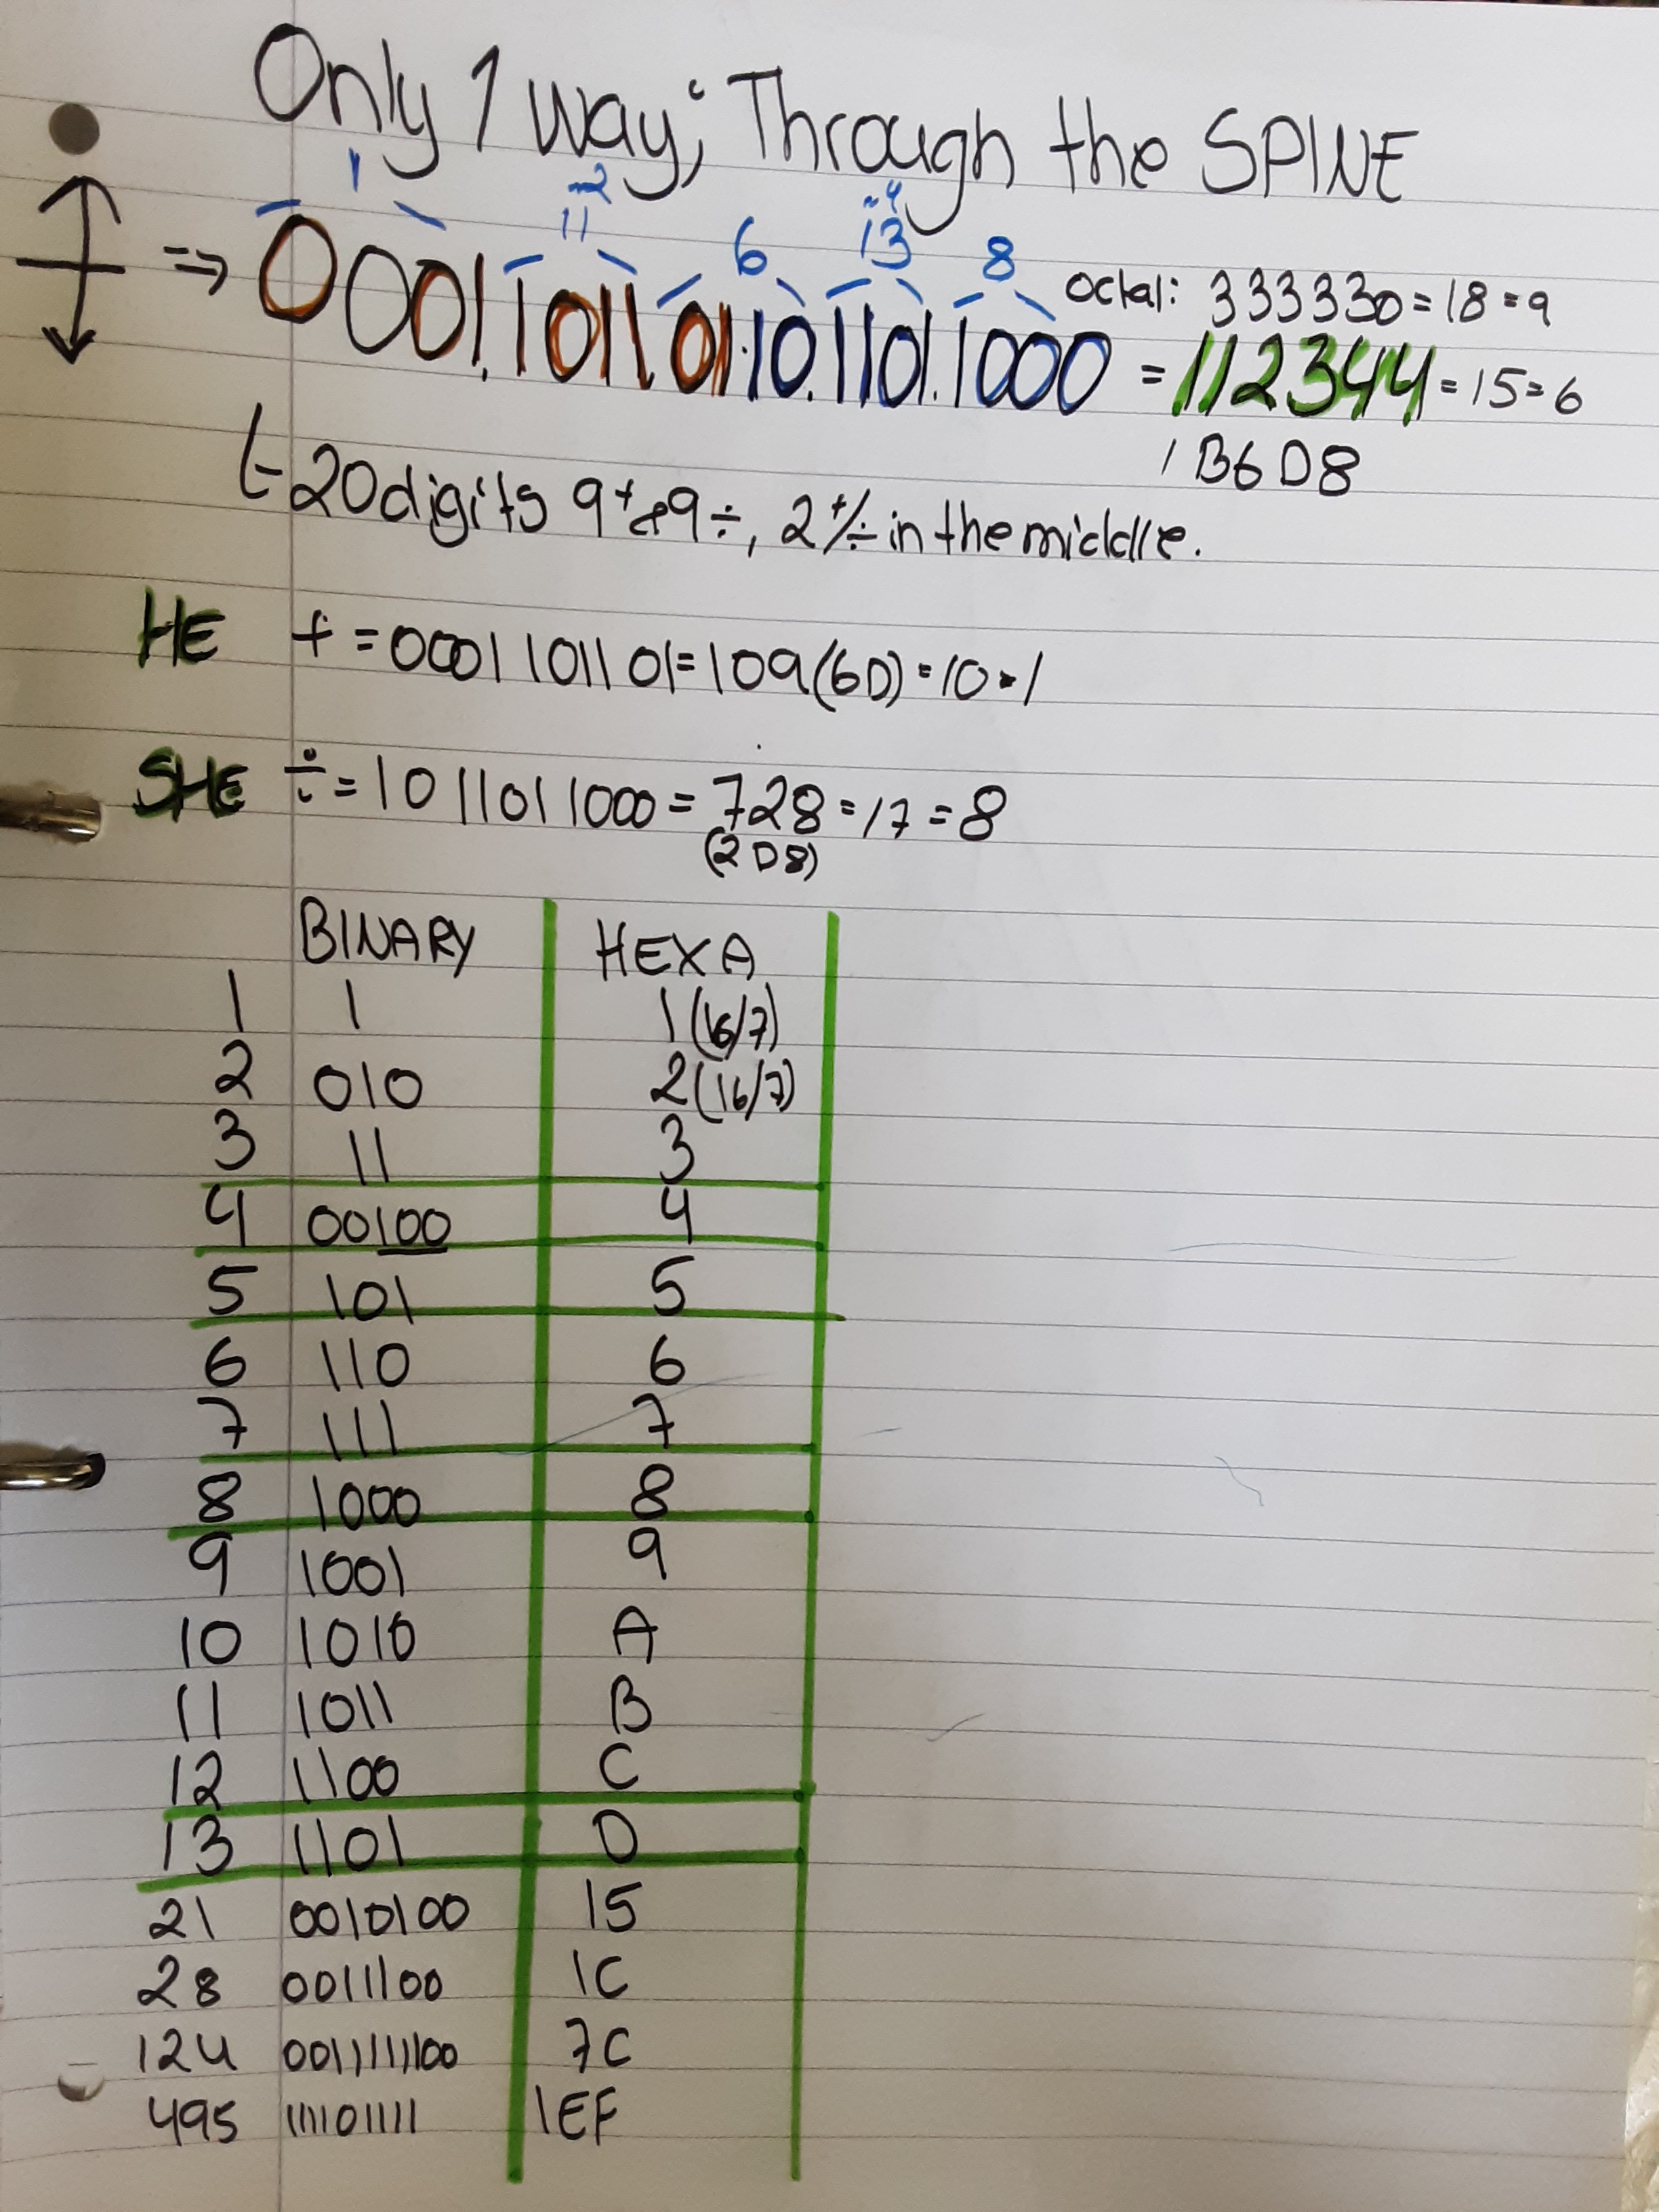 Only 1 way; Through the SPINE
1 -2 -4
11 6 13 8
=> 0001.1011.0110.1101.1000 = 112344 = 15 = 6
octal: 333330 = 18 = 9
1B6D8
20 digits 9+ & 9÷, 2 +/÷ in the middle.
HE + = 0001101101 = 109 (6D) = 10 = 1
SHE ÷ = 1011011000 = 728 = 17 = 8
(2D8)
BINARY HEXA
1 1 1 (16/7)
2 010 2 (16/7)
3 11 3
4 00100 4
5 101 5
6 110 6
7 111 7
8 1000 8
9 1001 9
10 1010 A
11 1011 B
12 1100 C
13 1101 D
21 0010100 15
28 0011100 1C
124 001111100 7C
495 111101111 1EF